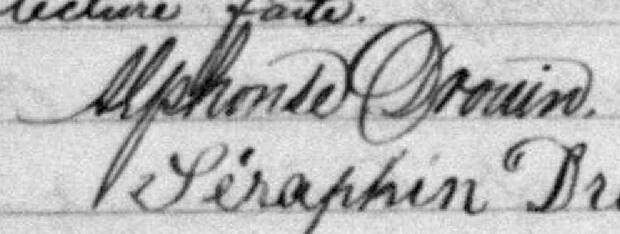 lecture faite.
Alphonse Drouin.
Séraphin Dro